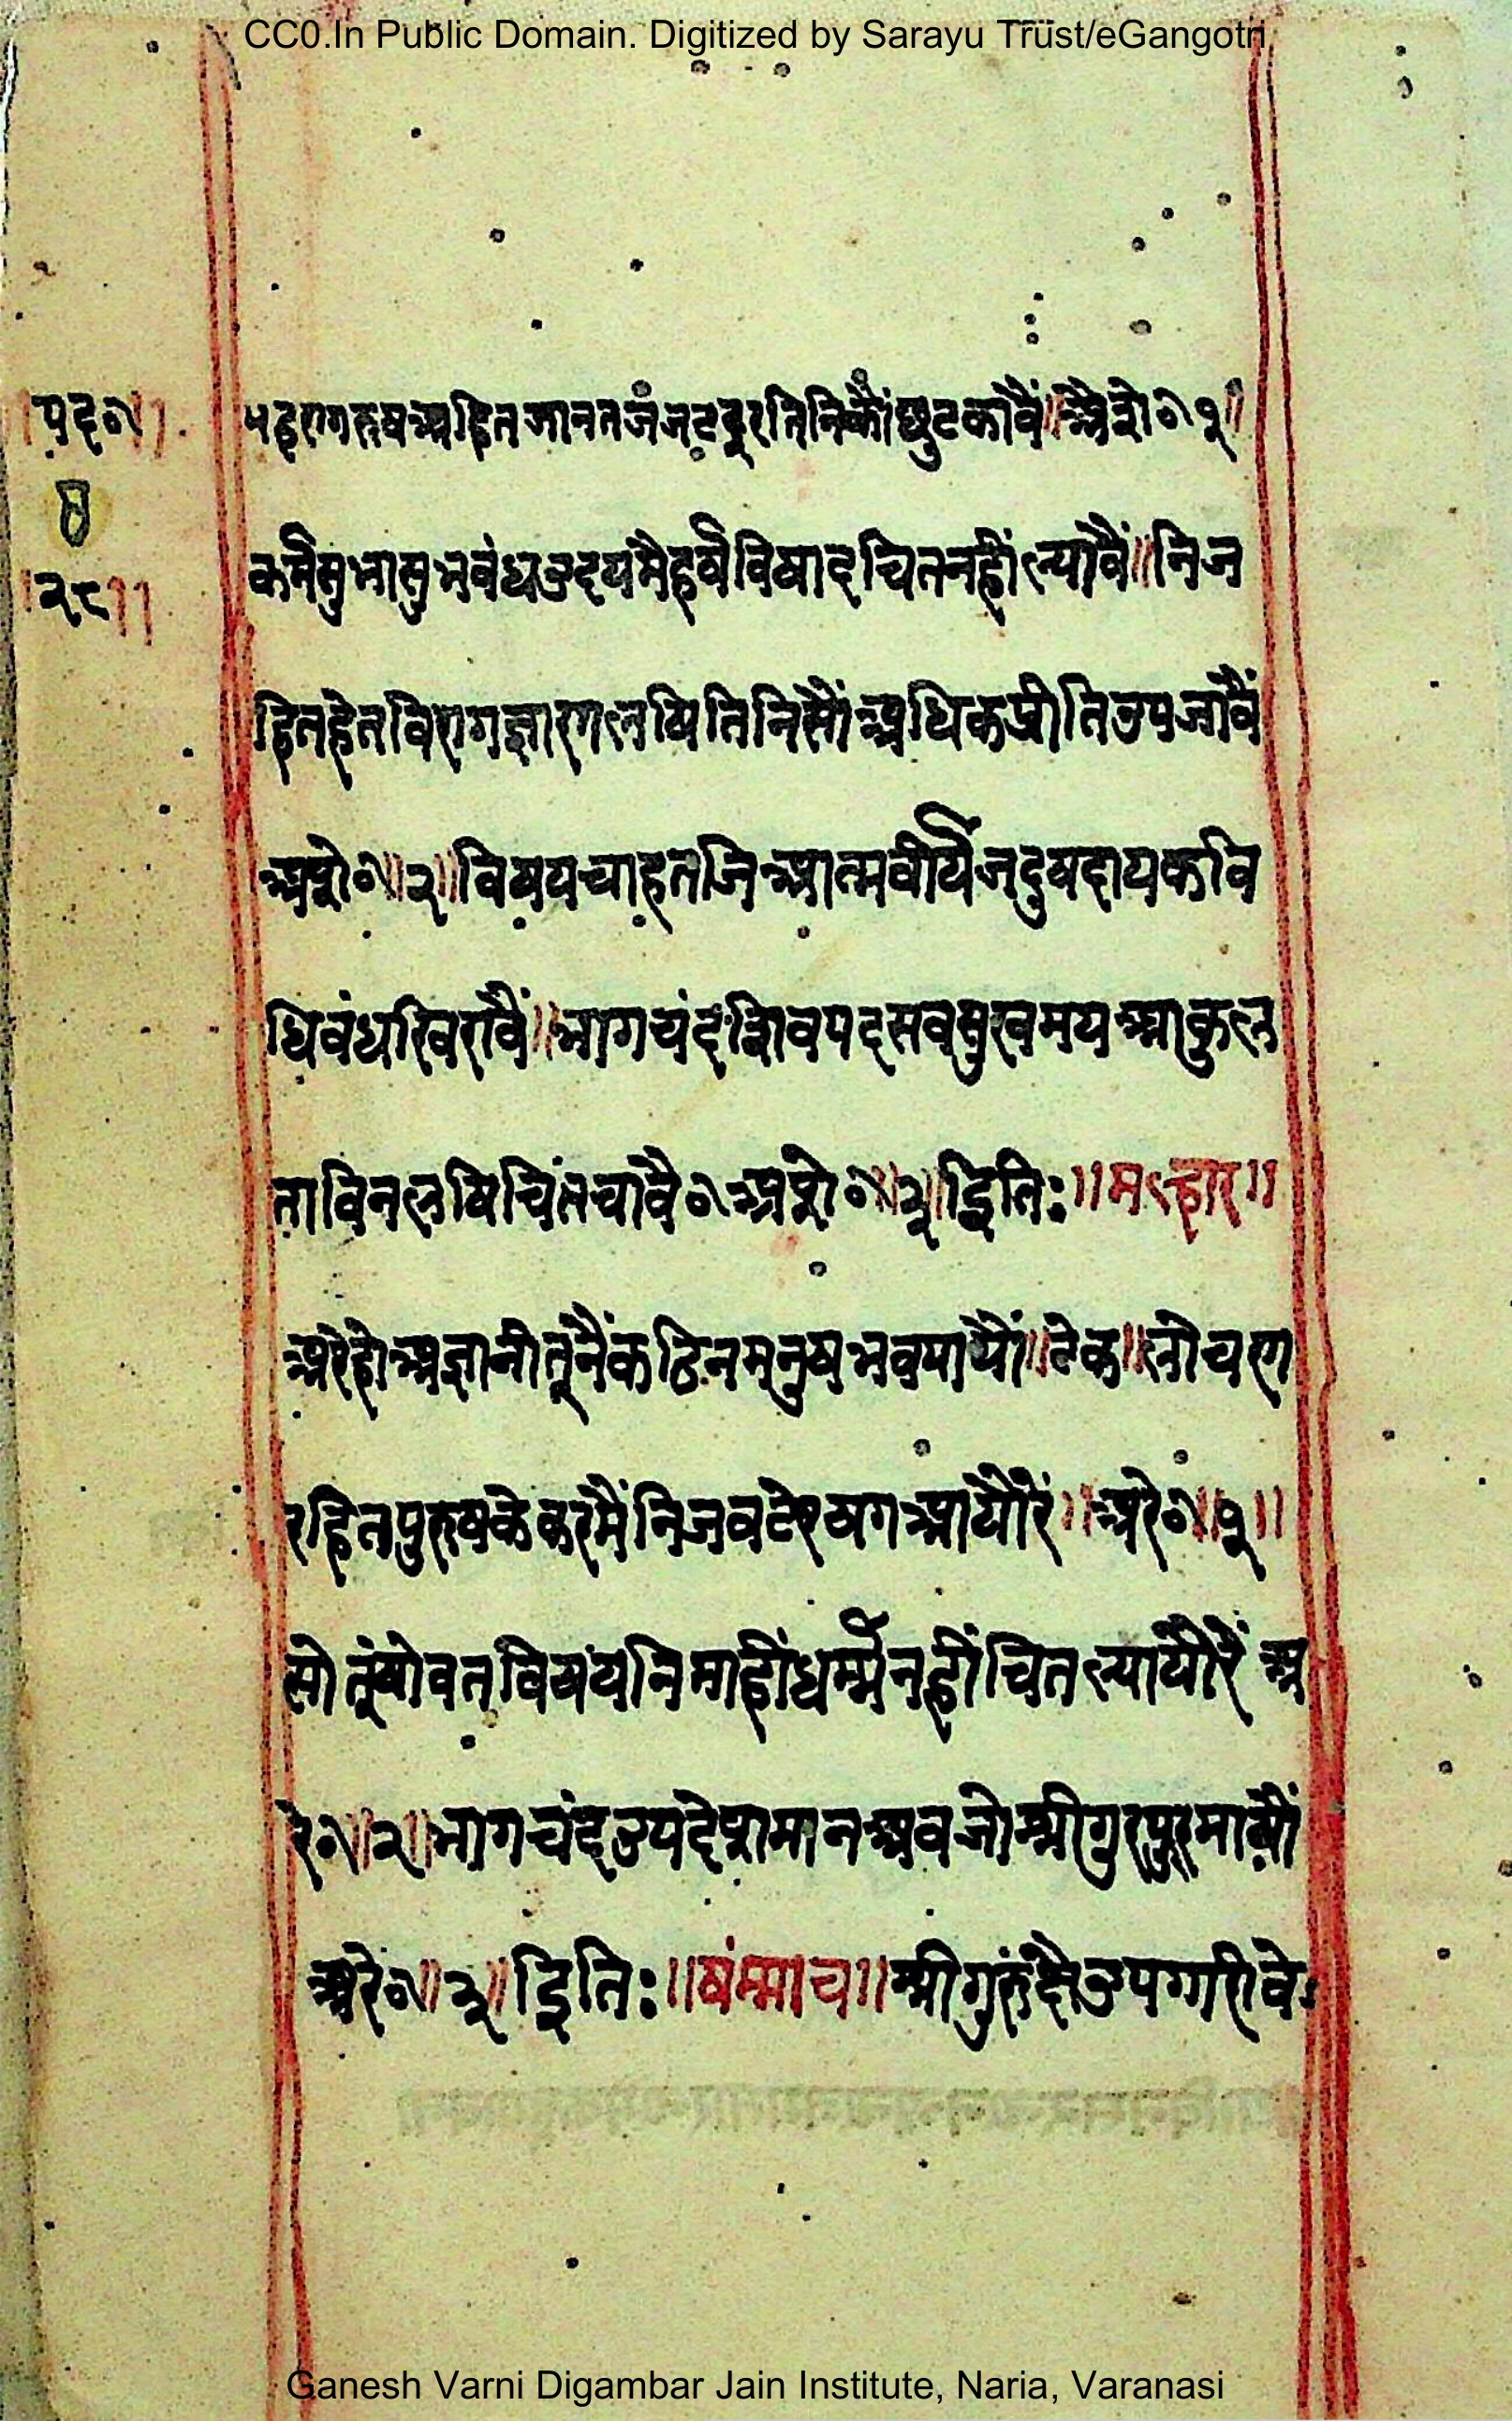 CC0.In Public Domain. Digitized by Sarayu Trust/eGangotri
॥पद०॥
२८॥
यहरागरुषअहितजानतजंजटदूरतिनिकौंछुटकावैं॥अैसे०१॥
कर्मसुभासुभबंधउदयमैहर्षविषादचितनहींल्यावैं॥निज
हितहेतविरागज्ञारगलषितिनिसौंअधिकप्रीतिउपजावैं
अैसे०॥२॥विषयचाहतजिआत्मवीर्यजदुषदायकवि
धिबंधखिरावैं॥भागचंदशिवपदसबसुखमयआकुल
ताविनलषिचितचावै०अैसे०॥३॥इति:॥मल्हार॥
अरेहोअज्ञानीतूनैंकठिनमनुषभवपायौं॥टेक॥लोचण
रहितपुरुषकेकरमैंनिजवटेरषगआयौरे॥अरे०॥१॥
सोतूंषोवतविषयनिमाहींधर्म्मनहींचितल्यायौरें अ
रे०॥२॥भागचंदउपदेशमानअबजोश्रीगुरपुरमायौं
अरे०॥३॥इति:॥षंम्माच॥श्रीगुरुंहैउपगारीवे
Ganesh Varni Digambar Jain Institute, Naria, Varanasi